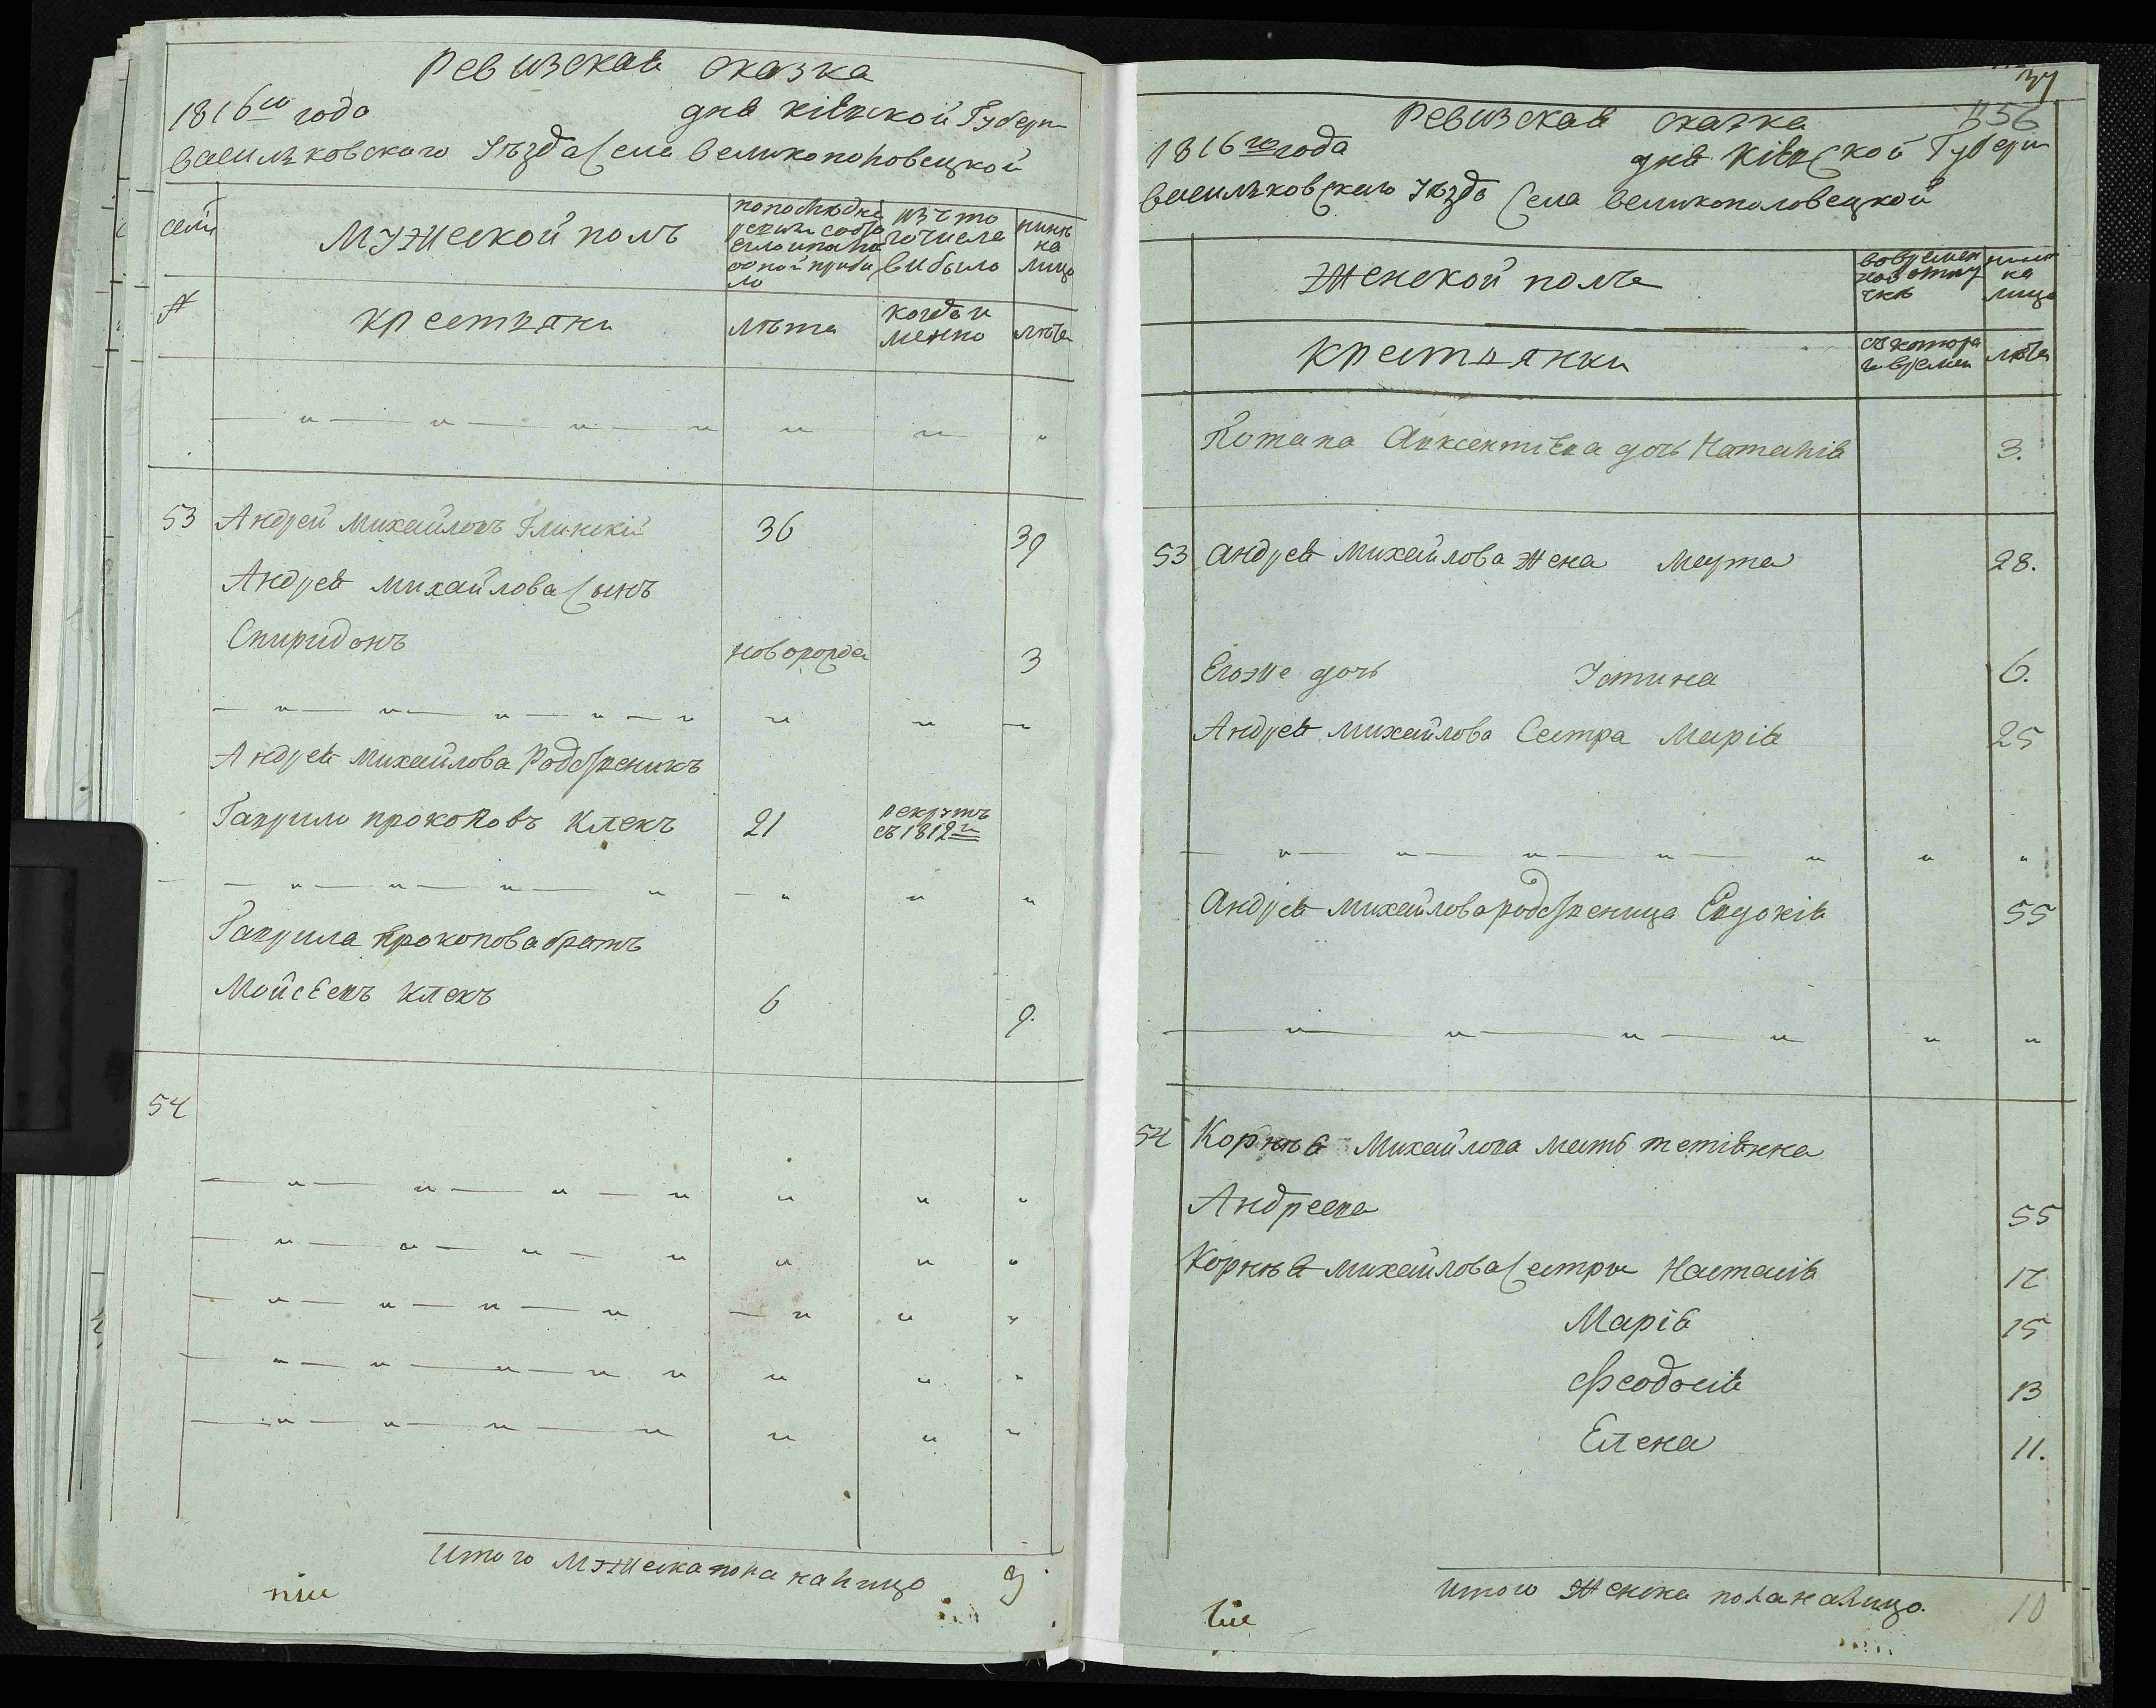 Ревизская сказка
1816го года дня Кіевской Губерн
Васильковского Уезда Села Великополовецкой
семи
Мужеской полъ
по последне ревизи состо яло и после оной прибы ло
изъ то го числа выбыло
нине на лицо
№
крестьяни
лета
когда и менно
лета
53 Андрей Михайловъ Глинскій 36 39
Андрея Михайлова Сынъ
Спиридонъ новорожде 3
Андрея Михайлова Родственикъ
Гаврило Прокоповъ Клекъ 21 рекрутъ съ 1812го
Гаврила Прокопова братъ
Мойсеевъ Клекъ 6 9.
54
Итого Мужеска пола налицо 3
37
456
Ревизская сказка
1816го года дня Кіевской Губерн
Васильковского Уезда Села Великополовецкой
Женской полъ
во времен ной отлу чке
нине на лицо
Крестьянки
съ котора го времен
лета
Романа Авксентиева дочь Наталія 3.
53 Андрея Михайлова Жена Марта 28.
Егоже дочь Устина 6.
Андрея Михайлова Сестра Марія 25
Андрея Михайлова родственица Евдокія 55
54 Корнея Михайлова Мать Тетіянна
Андреева 55
Корнея Михайлова Сестри Настасія 17
Марія 15
Феодосія 13
Елена 11.
Итого Женска пола налицо. 10